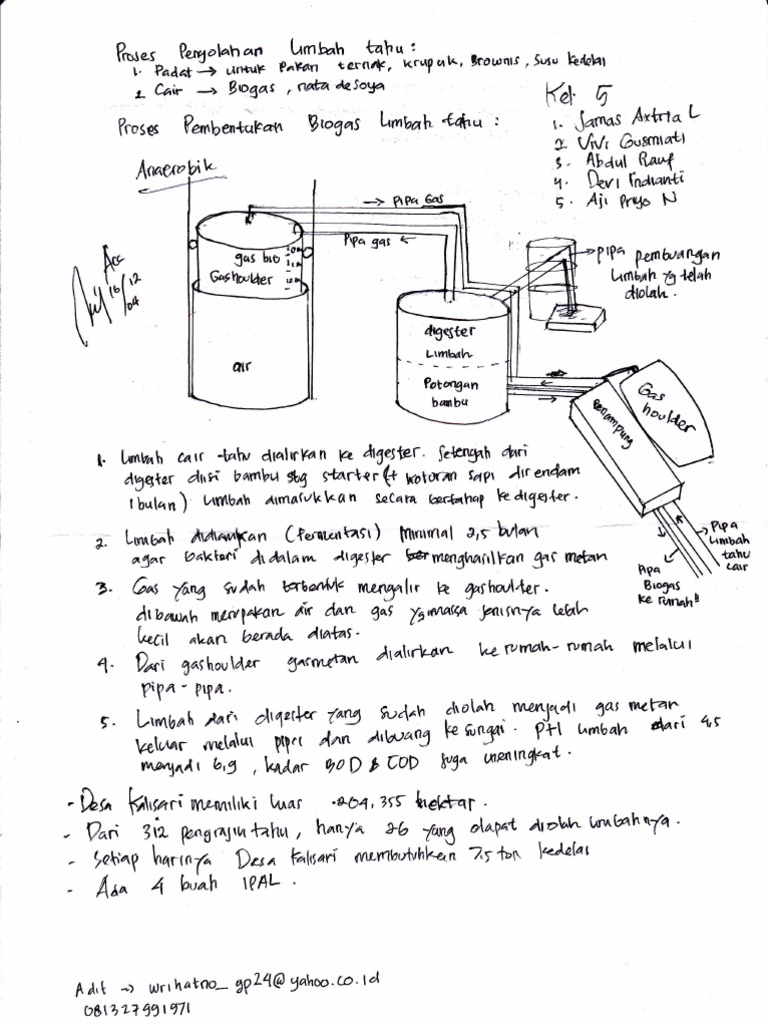 Proses Pengolahan Limbah tahu :
1. Padat → untuk pakan ternak, krupuk, Brownis, susu kedelai
2. Cair → Biogas, nata de soya
Kel. 5
1. Jamas Axtria L
2. Vivi Gusmiati
3. Abdul Rauf
4. Devi Indianti
5. Aji Priyo N
Proses Pembentukan Biogas Limbah tahu :
Anaerobik
→ pipa Gas
Pipa gas ←
gas bio
Gashoulder
air
Acc
16/12
04
digester
Limbah
Potongan
bambu
pipa pembuangan
Limbah yg telah
diolah.
Penampung
Gas
houlder
Pipa
Limbah
tahu
cair
Apa
Biogas
ke rumah"
1. Limbah cair tahu dialirkan ke digester. Setengah dari
digester diisi bambu sbg starter (+ kotoran sapi direndam
1 bulan) Limbah dimasukkan secara bertahap ke digester.
2. Limbah didiamkan (fermentasi) minimal 2,5 bulan
agar bakteri didalam digester menghasilkan gas metan
3. Gas yang sudah terbentuk mengalir ke gashoulter.
dibawah merupakan air dan gas yg massa jenisnya lebih
kecil akan berada diatas.
4. Dari gashoulder gasmetan dialirkan ke rumah-rumah melalui
pipa-pipa.
5. Limbah dari digester yang sudah diolah menjadi gas metan
keluar melalui pipa dan dibuang ke sungai. PH limbah dari 4,5
menjadi 6,9, kadar BOD & COD juga meningkat.
- Desa Kalisari memiliki luas 204,355 hektar.
- Dari 312 pengrajin tahu, hanya 26 yang dapat diolah limbahnya.
- Setiap harinya Desa Kalisari membutuhkan 7,5 ton kedelai
- Ada 4 buah IPAL.
Adit → wrihatno_gp24@yahoo.co.id
081327991971